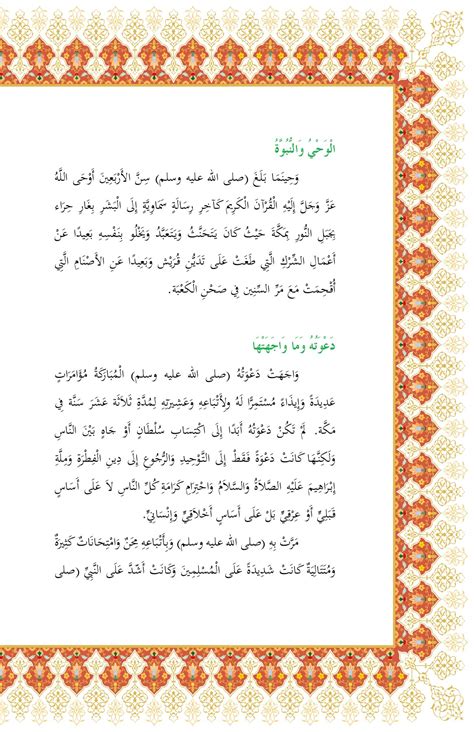 الْوَحْيُ وَالنُّبُوَّةُ
وَحِينَمَا بَلَغَ (صلى الله عليه وسلم) سِنَّ الأَرْبَعِينَ أَوْحَى اللَّهُ
عَزَّ وَجَلَّ إِلَيْهِ الْقُرْآنَ الْكَرِيمَ كَآخِرِ رِسَالَةٍ سَمَاوِيَّةٍ إِلَى الْبَشَرِ بِغَارِ حِرَاء
بِجَبَلِ النُّورِ بِمَكَّةَ حَيْثُ كَانَ يَتَحَنَّثُ وَيَتَعَبَّدُ وَيَخْلُو بِنَفْسِهِ بَعِيدًا عَنْ
أَعْمَالِ الشِّرْكِ الَّتِي طَغَتْ عَلَى تَدَيُّنِ قُرَيْشٍ وَبَعِيدًا عَنِ الأَصْنَامِ الَّتِي
أُقْحِمَتْ مَعَ مَرِّ السِّنِينَ فِي صَحْنِ الْكَعْبَةِ.
دَعْوَتُهُ وَمَا وَاجَهَتْهَا
وَاجَهَتْ دَعْوَتُهُ (صلى الله عليه وسلم) الْمُبَارَكَةُ مُؤَامَرَاتٍ
عَدِيدَةً وَإِيذَاءً مُسْتَمِرًّا لَهُ وِلأَتْبَاعِهِ وَعَشِيرَتِهِ لِمُدَّةِ ثَلاَثَةَ عَشَرَ سَنَّة فِي
مَكَّة. لَمْ تَكُنْ دَعْوَتُهُ أَبَدًا إِلَى اكْتِسَابِ سُلْطَانٍ أَوْ جَاهٍ بَيْنَ النَّاسِ
وَلَكِنَّهَا كَانَتْ دَعْوَةً فَقَطْ إِلَى التَّوْحِيدِ وَالرُّجُوعِ إِلَى دِينِ الْفِطْرَةِ وَمِلَّةِ
إِبْرَاهِيمَ عَلَيْهِ الصَّلاَةُ وَالسَّلاَمُ وَاحْتِرَامِ كَرَامَةِ كُلِّ النَّاسِ لاَ عَلَى أَسَاسٍ
قَبَلِيٍّ أَوْ عِرْقِيٍّ بَلْ عَلَى أَسَاسٍ أَخْلاَقِيٍّ وَإِنْسَانِيٍّ.
مَرَّتْ بِهِ (صلى الله عليه وسلم) وَبِأَتْبَاعِهِ مِحَنٌ وَامْتِحَانَاتٌ كَثِيرَةٌ
وَمُتَتَالِيَةٌ كَانَتْ شَدِيدَةً عَلَى الْمُسْلِمِينَ وَكَانَتْ أَشَدَّ عَلَى النَّبِيِّ (صلى